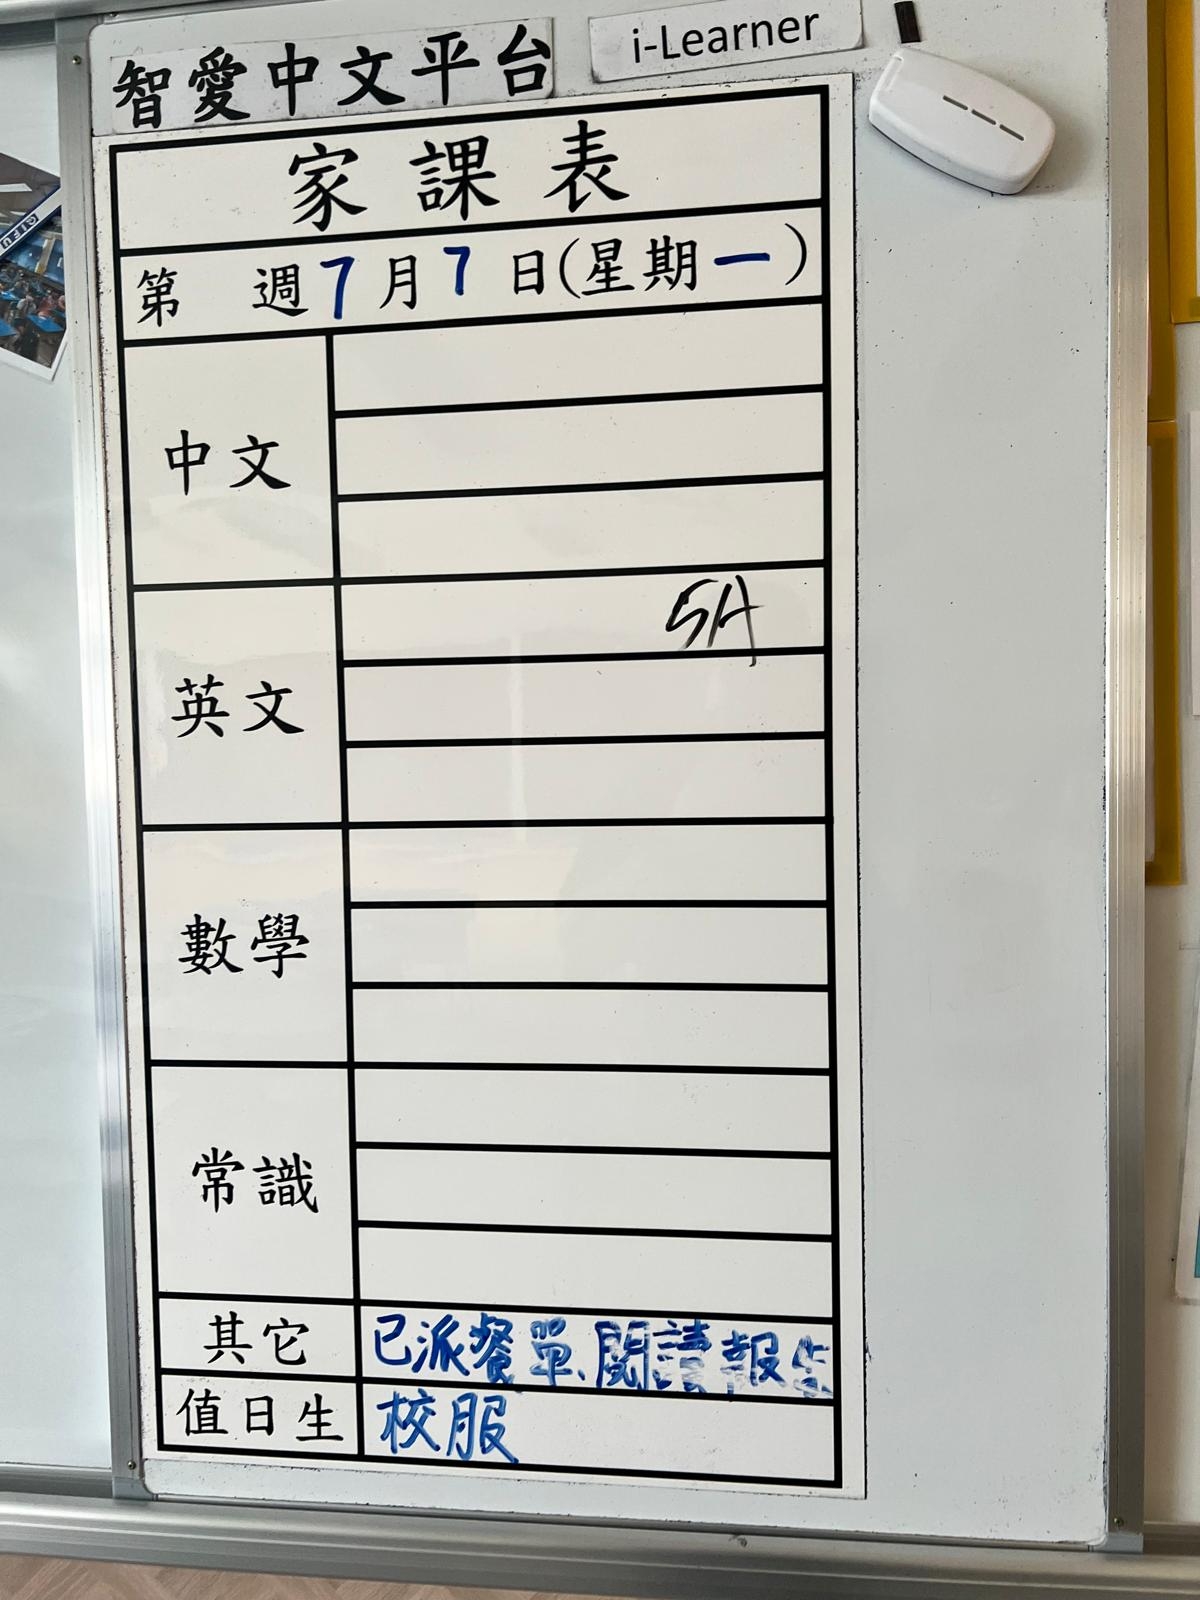 智愛中文平台
i-Learner
家課表
第 週7月7日(星期一)
中文
5A
英文
數學
常識
其它 已派餐單、閱讀報告
值日生 校服